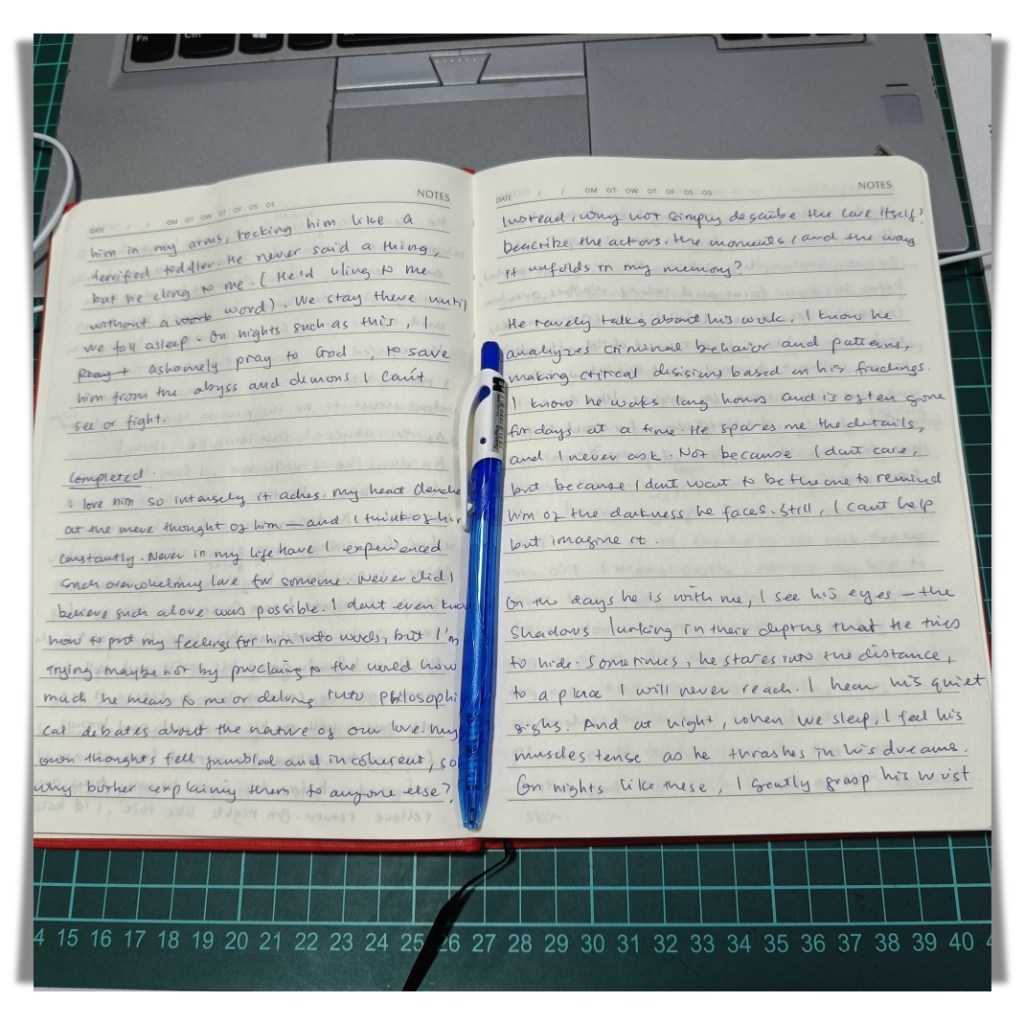 Fn
NOTES
DATE / / OM OT OW OT OF OS OS
him in my arms, rocking him like a
terrified toddler. He never said a thing,
but he cling to me. (He'd cling to me
without a word). We stay there until
we fall asleep. On nights such as this, I
pray t ashamely pray to God, to save
him from the abyss and demons I can't
see or fight.
Completed
I love him so intensely it aches. my heart
at the mere thought of him — and I think of him
constantly. Never in my life have I experienced
such overwhelming love for someone. Never did I
believe such a love was possible. I dont even know
how to put my feelings for him into words, but I'm
trying maybe not by proclaing to the world how
much he means to me or delving into philosophi
cal debates about the nature of our love. my
own thoughts fell jumbled and incoherent, so
why bother explaining them to anyone else?
NOTES
DATE / / OM OT OW OT OF OS OS
Instead, why not simply describe the love itself?
Describe the actors. the moments, and the way
it unfolds in my memory?
He rarely talks about his work. I know he
analyzes criminal behavior and pattern,
making critical desisions based on his findings.
I know he works long hours and is often gone
for days at a time He spares me the details,
and I never ask. Not because I dont care,
but because I dont want to be the one to remind
him of the darkness he faces. Still, I cant help
but imagine it.
On the days he is with me, I see his eyes — the
shadows lurking in their depths that he tries
to hide. Sometimes, he stares into the distance,
to a place I will never reach. I hear his quiet
sighs. And at night, when we sleep, I feel his
muscles tense as he thrashes in his dreams.
On nights like these, I gently grasp his wrist
4 15 16 17 18 19 20 21 22 23 24 25 26 27 28 29 30 31 32 33 34 35 36 37 38 39 40 4